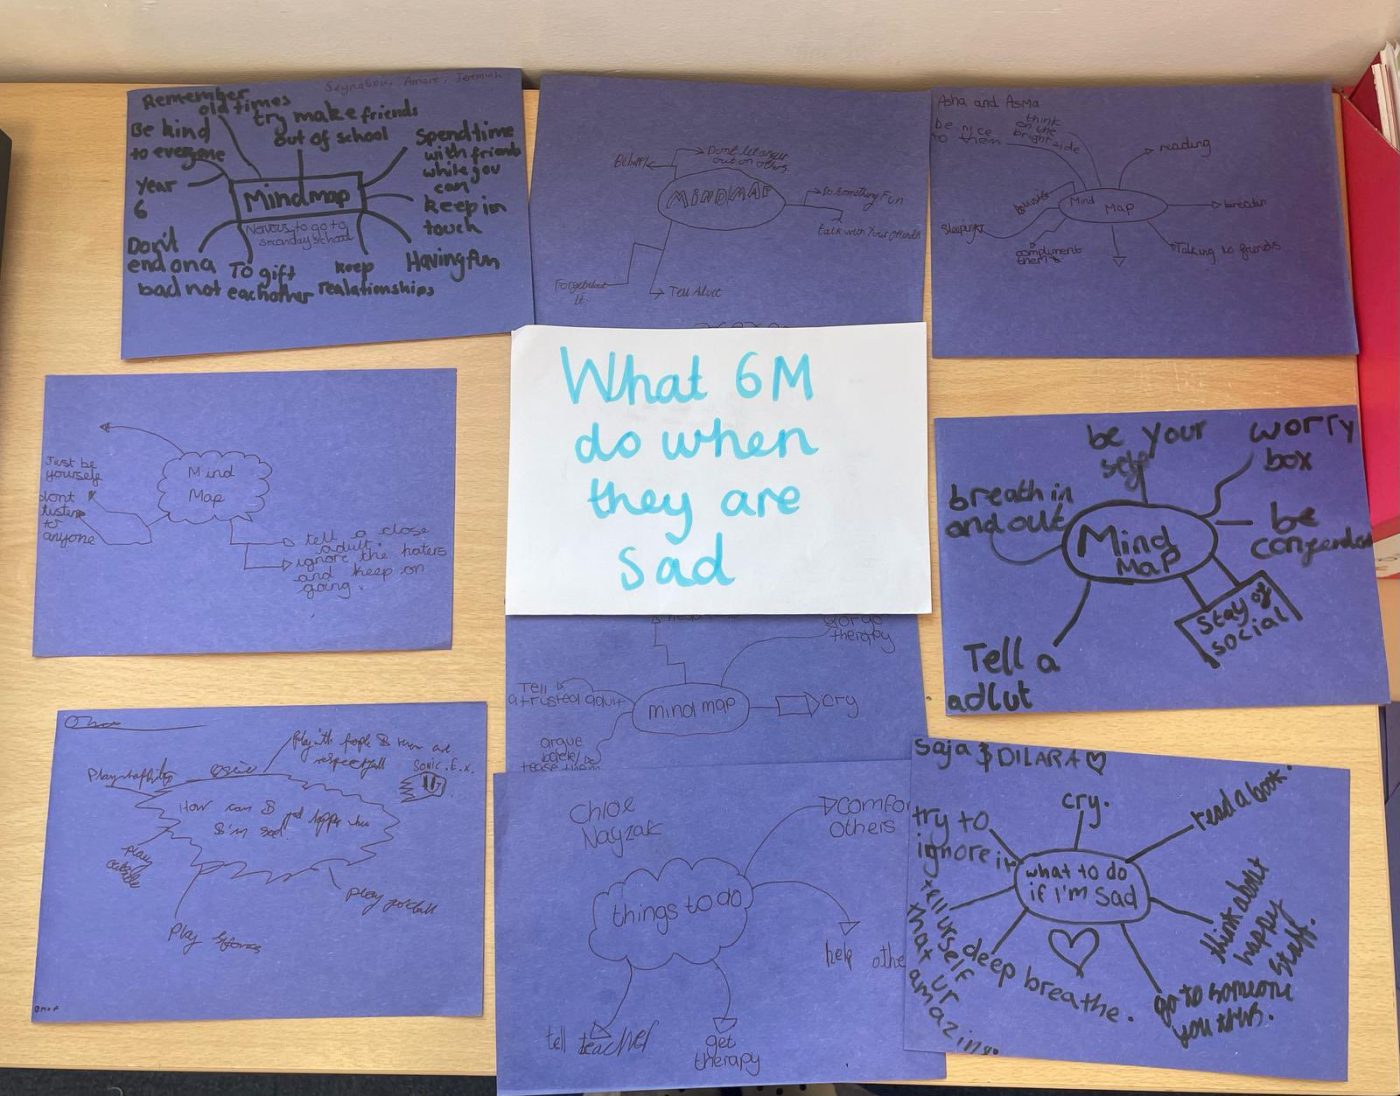 Remember
old times
Be kind
to everyone
Year
6
Don't
end on a
bad not
To gift
eachother
keep
realationships
Having fun
keep in
touch
Spend time
with friends
while you
can
try make friends
out of school
Mindmap
Nervous to go to
secondary school
MINDMAP
Be happy
Don't let anger
out on others
Do something Fun
talk with your friends
Forget about
it
Asha and Asma
be nice
to them
think
on the
bright side
reading
Mind
Map
compliment
them
Talking to friends
What 6M
do when
they are
sad
Mind
Map
Just be
yourself
dont
listen
to
anyone
tell a close
adult.
ignore the haters
and keep on
going.
be your
self
worry
box
breath in
and out
Mind
Map
be
Stay of
social
Tell a
adlut
therapy
Tell
a trusted adult
mind map
cry
argue
back/
tease them
respectfull
SONIC.E.X.
How can I
I'm sad
play
outside
Chloe
Nayzak
comfo
others
things to do
help othe
tell teacher
get
therapy
Saja & DILARA
cry.
read a book.
try to
ignore it
what to do
if I'm sad
tell urself
that ur
amazing.
deep breathe.
think about
happy
staff.
go to someone